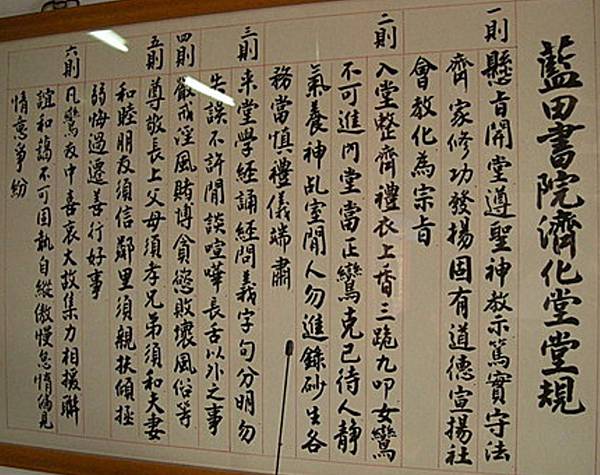 藍田書院濟化堂堂規
一則
懸旨開堂遵聖神教示篤實守法
齊家修功發揚固有道德宣揚社
會教化為宗旨
二則
入堂整齊禮衣上香三跪九叩女鸞
不可進內堂當正鸞克己待人靜
氣養神乩室閒人勿進錄砂生各
務當慎禮儀端肅
三則
來堂學經誦經問義字句分明勿
失誤不許閒談喧嘩長舌以外之事
四則
嚴戒淫風賭博貪慾敗壞風俗等
五則
尊敬長上父母須孝兄弟須和夫妻
和睦朋友須信鄰里須親扶傾拯
弱悔過遷善行好事
六則
凡鸞友中喜哀大故集力相援聯
誼和謁不可固執自縱傲慢怠惰偏見
情意爭紛